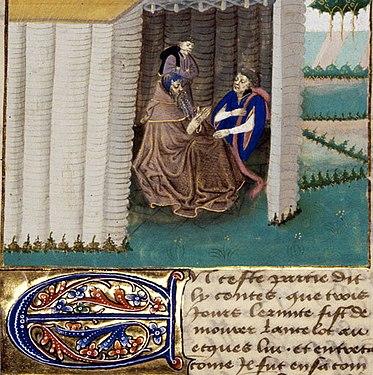 EN ceste partie dit
ly contes, que trois
Jours lermite fist de
mourer lancelot au
ecques luy. et entreta
come Il fut en sa com